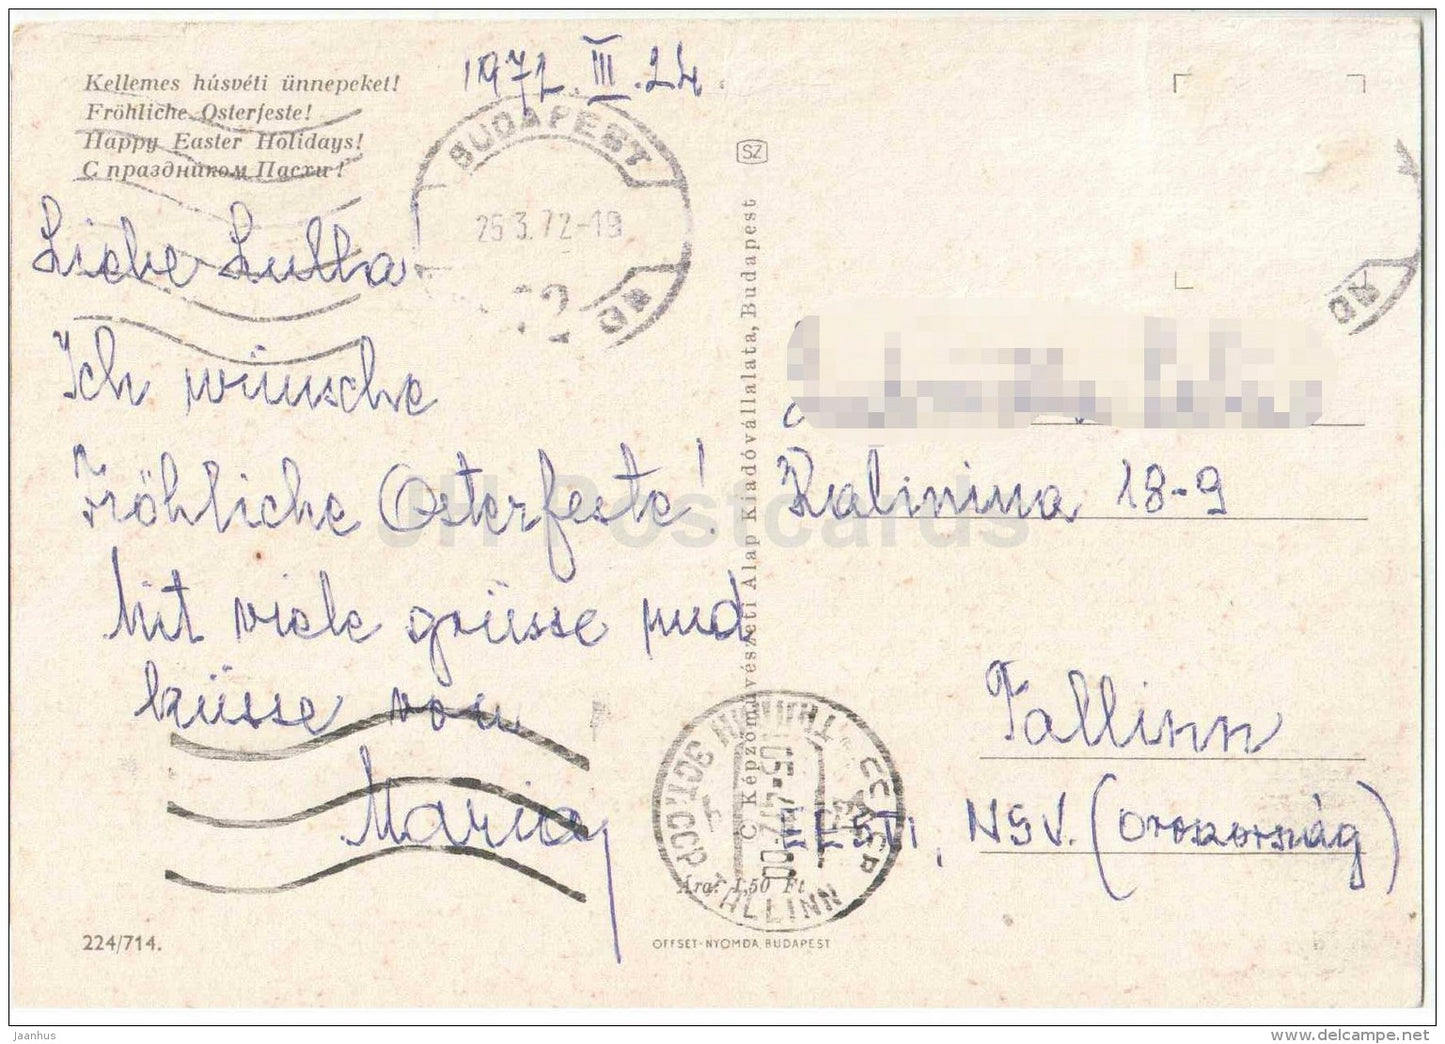 Kellemes húsvéti ünnepeket!
Fröhliche Osterfeste!
Happy Easter Holidays!
С праздником Пасхи!
1972. III. 24.
BUDAPEST
25.3.72-19
72
SZ
Liebe Lulla!
Ich wünsche
Fröhliche Osterfeste!
Mit viele grüsse und
küsse von
Maria
Kalinina 18-9
Tallinn
EESTI, NSV. (Oroszország)
C Képzőművészeti Alap Kiadóvállalata, Budapest
ТАЛЛИН ЭСТ.ССР
TALLINN
Ára: 1,50 Ft
224/714.
OFFSET-NYOMDA, BUDAPEST
JH Postcards
jaanhus
www.delcampe.net